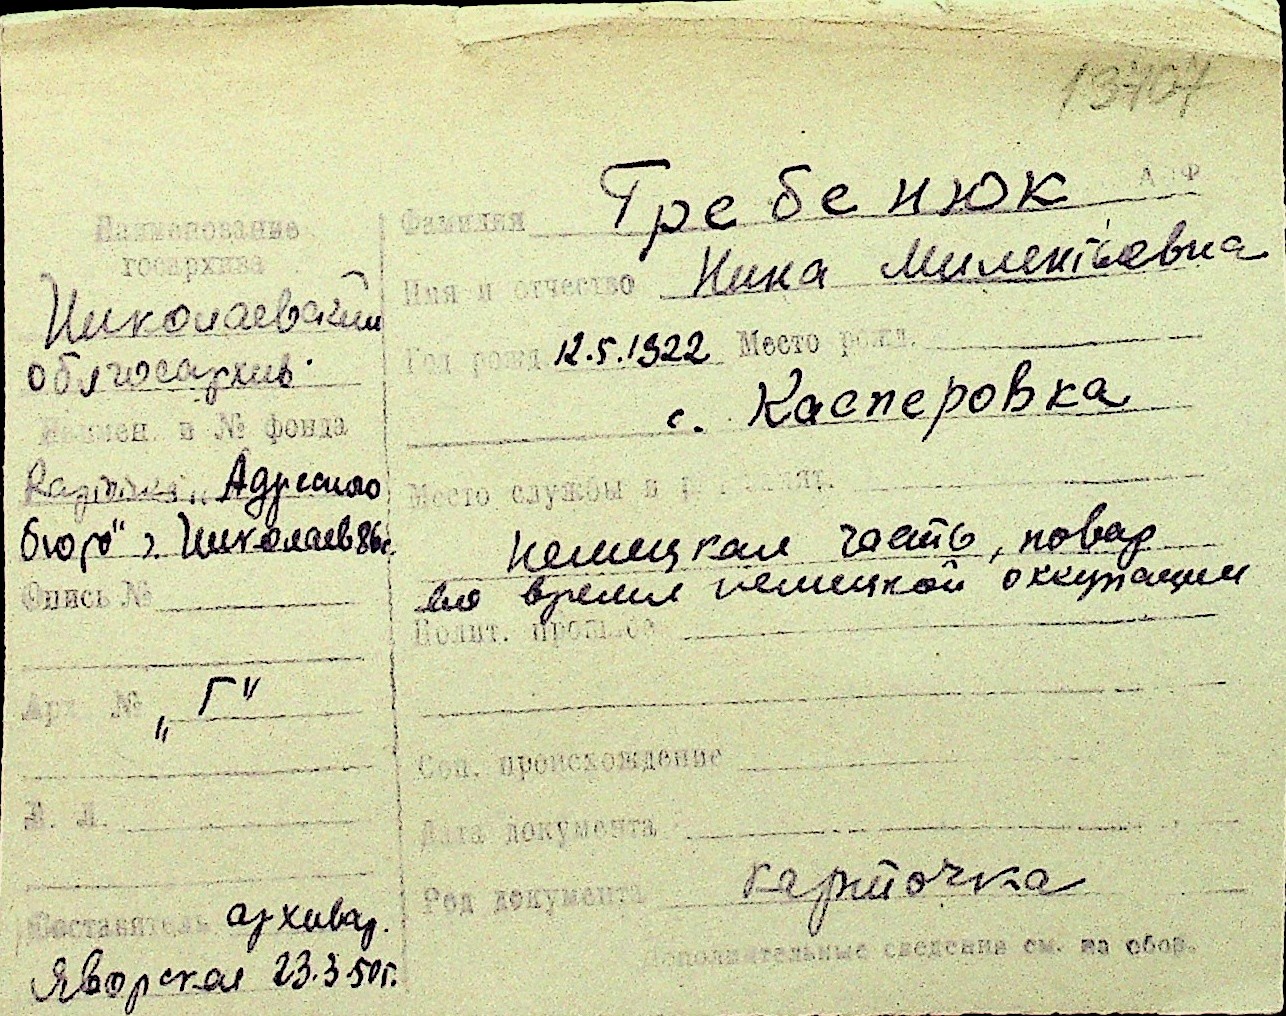 13707
А Ф
Фамилия Гребенюк
Имя и отчество Нина Милентьевна
Год рожд 12.5.1922 Место рожд.
с. Касперовка
Место службы и
немецкая часть, повар
во время немецкой оккупации
Полит.
Соц. происхождение
Дата документа
Род документа карточка
Дополнительные сведения см. на обор.
Наименование
госархива
Николаевский
облгосархив.
Наимен. и № фонда
"Адресного
бюро" г. Николаев
Опись №
Арх №
„Г"
Составитель архивар.
Яворская 23.3.50г.